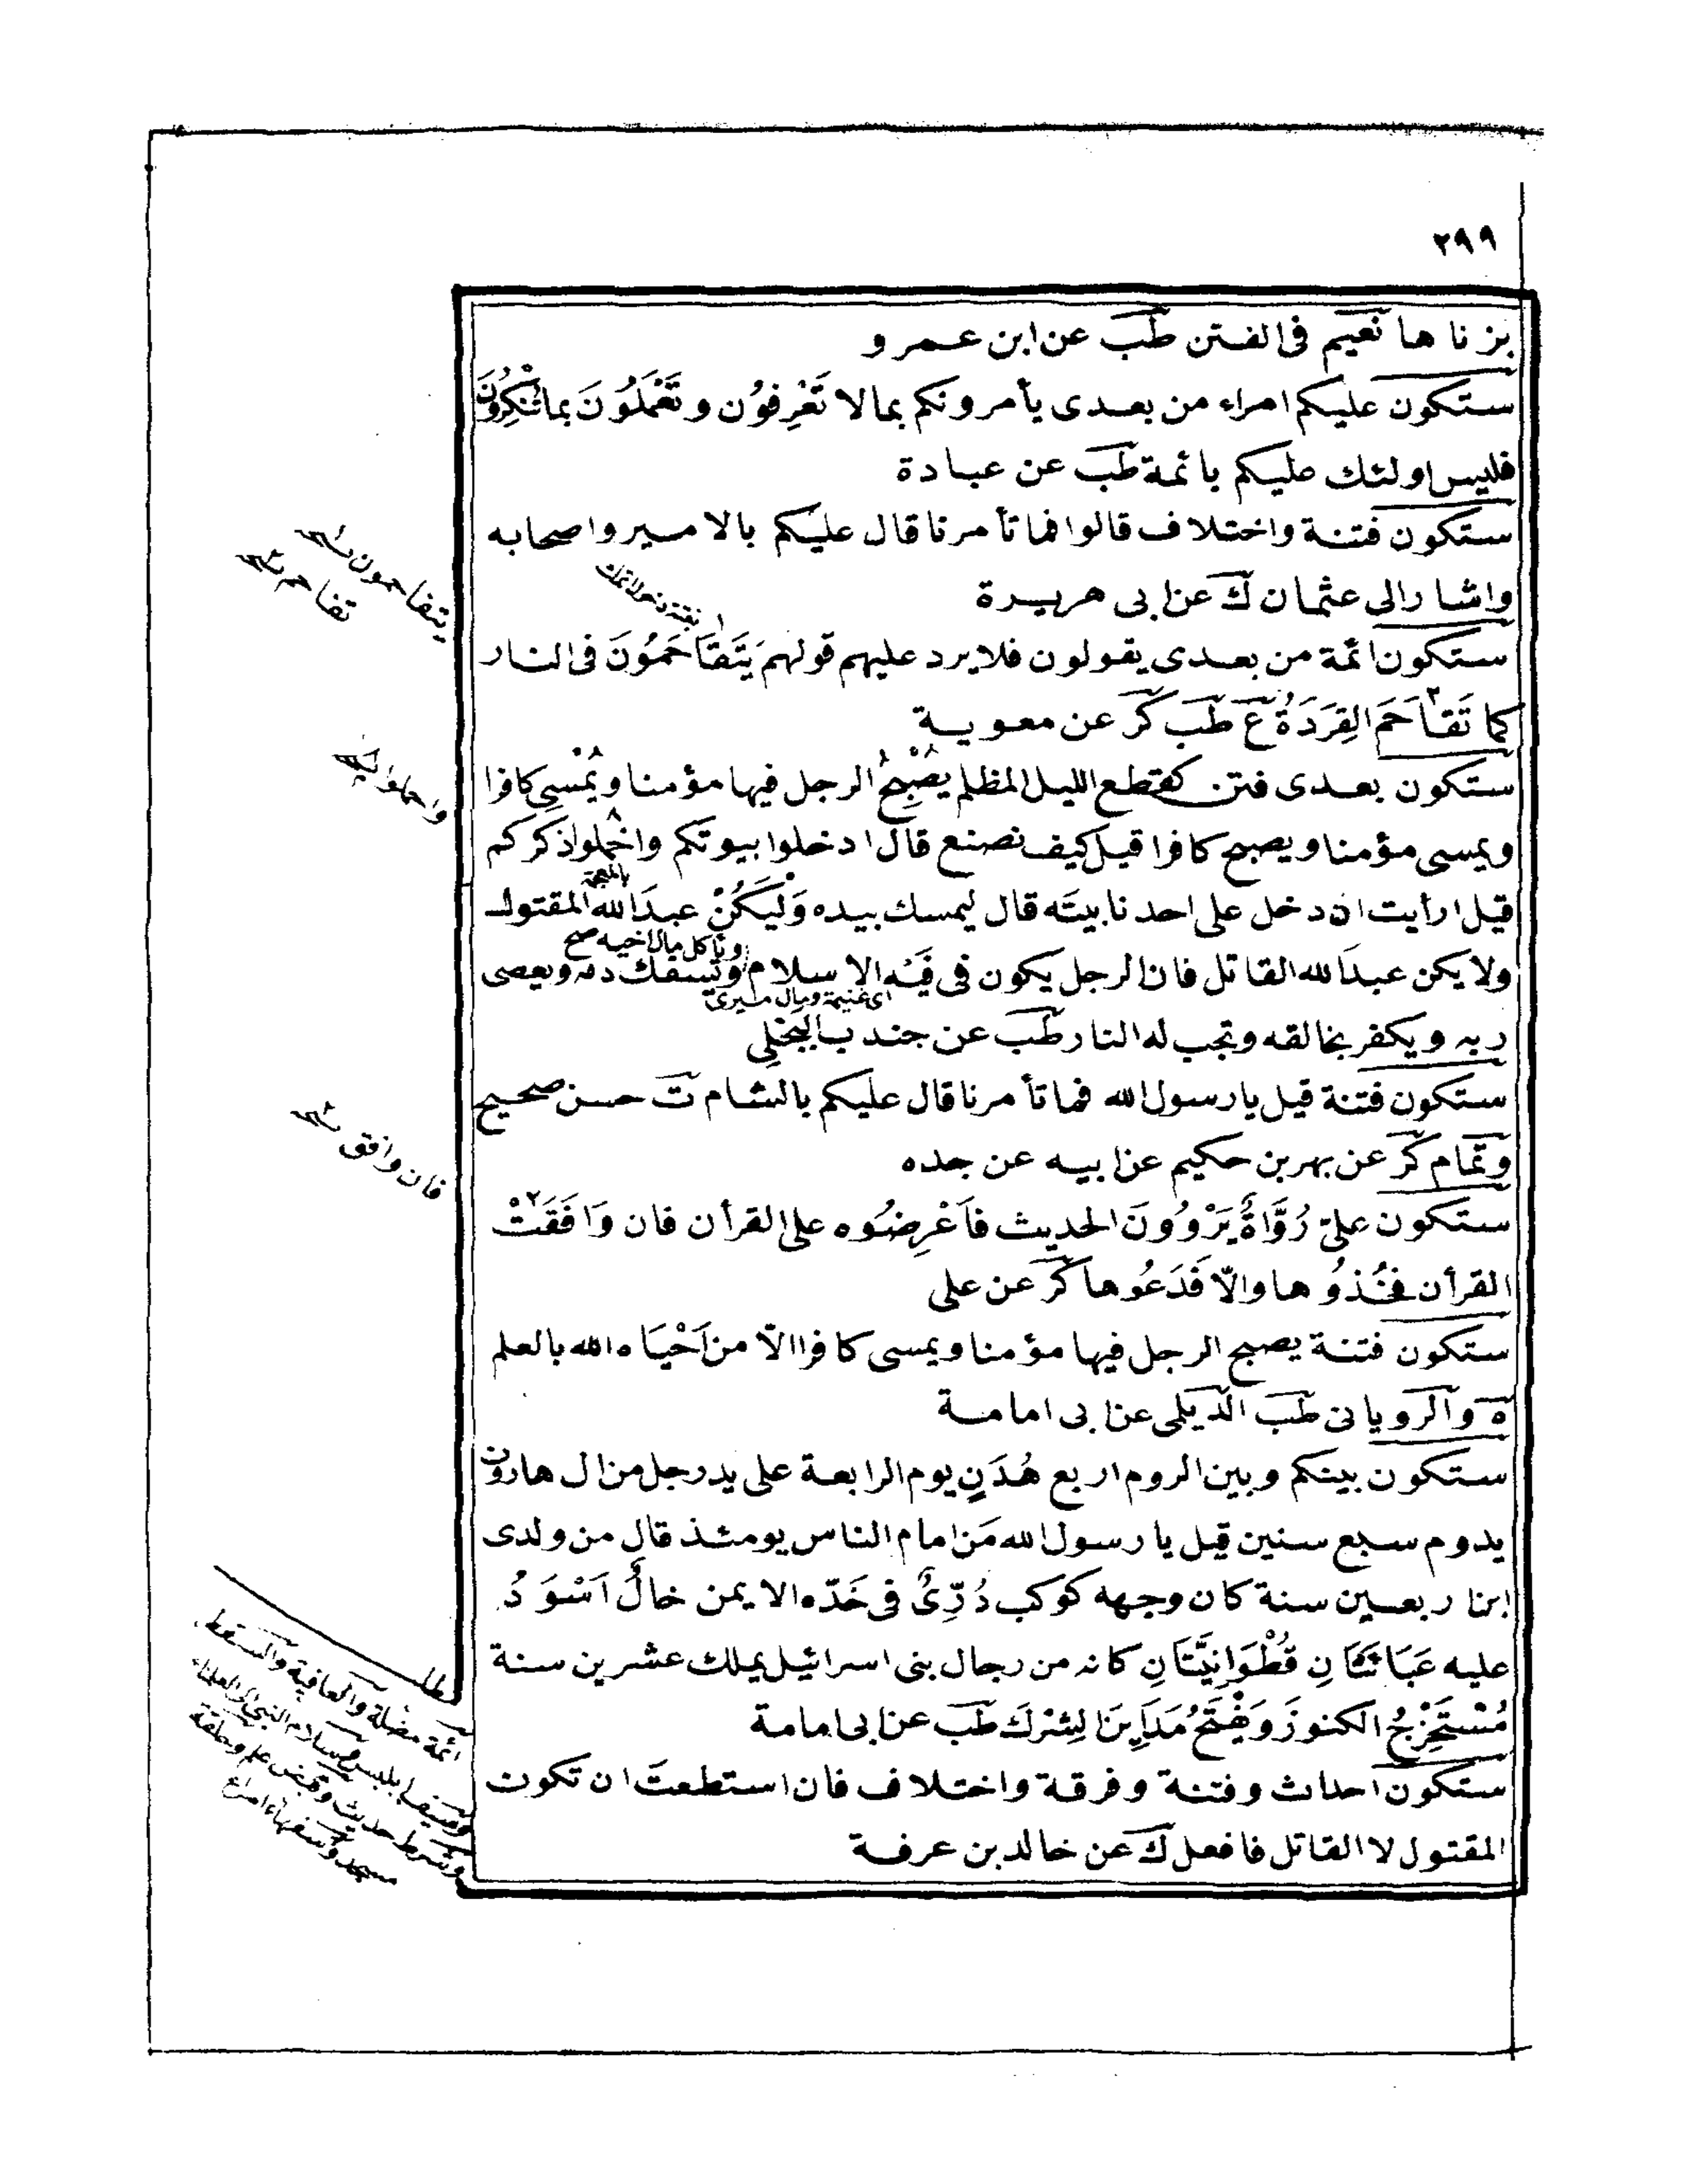 ٢٩٩
بزناها نعيم فى الفتن طب عن ابن عمرو
ستكون عليكم امراء من بعدى يأمرونكم بما لا تَعْرِفُون وتَعْمَلُونَ بما تُنْكِرُونَ
فليس اولئك عليكم بائمة طب عن عبادة
ستكون فتنة واختلاف قالوا فما تأمرنا قال عليكم بالامير واصحابه
واشار الى عثمان ك عن ابى هريرة
ستكون ائمة من بعدى يقولون فلا يرد عليهم قولهم يَتَقَاحَمُونَ فى النار
كما تَقَاحَمَ القِرَدَةُ ع طب كر عن معوية
ستكون بعدى فتن كقطع الليل المظلم يُصْبِحُ الرجل فيها مؤمنا ويُمْسِى كافرا
ويمسى مؤمنا ويصبح كافرا قيل كيف نصنع قال ادخلوا بيوتكم واخملوا ذكركم
بالمعجمة
قيل ارأيت ان دخل على احدنا بيتَه قال ليمسك بيده وَلْيَكُنْ عبدَالله المقتول
وتأكل مال اخيه صح
ولا يكن عبدَالله القاتل فان الرجل يكون فى فَيْه الاسلام وتسفك دمه ويعصى
اى غنيمة ومال ميرى
ربه ويكفر بخالقه وتجب له النار طب عن جندب البجلى
ستكون فتنة قيل يا رسول الله فما تأمرنا قال عليكم بالشام ت حسن صحيح
وتمام كر عن بهر بن حكيم عن ابيه عن جده
ستكون علىّ رُوَّاةٌ يَرْوُونَ الحديث فاَعْرِضُوه على القرأن فان وَافَقَتْ
القرأن فخُذُوها والّا فَدَعُوها كر عن على
ستكون فتنة يصبح الرجل فيها مؤمنا ويمسى كافرا الّا من اَحْيَاه الله بالعلم
ه والرويانى طب الديلمى عن ابى امامة
ستكون بينكم وبين الروم اربع هُدَنٍ يوم الرابعة على يد رجل من ال هارون
يدوم سبع سنين قيل يا رسول الله مَن امام الناس يومئذ قال من ولدى
ابن اربعين سنة كان وجهه كوكب دُرِّىٌّ فى خَدّه الايمن خالٌ اَسْوَدُ
عليه عَبَائَتَانِ قُطْوَانِيَّتَانِ كانه من رجال بنى اسرائيل يملك عشرين سنة
مُسْتَخْرِجُ الكنوزَ وَيَفْتَحُ مَدَايِنَ الشرك طب عن ابى امامة
ستكون احداث وفتنة وفرقة واختلاف فان استطعتَ ان تكون
المقتول لا القاتل فافعل ك عن خالد بن عرفة
يتفاحمون
تفاحم
واحملوا
فان وافق
ائمة مضلة والعافية والسقط